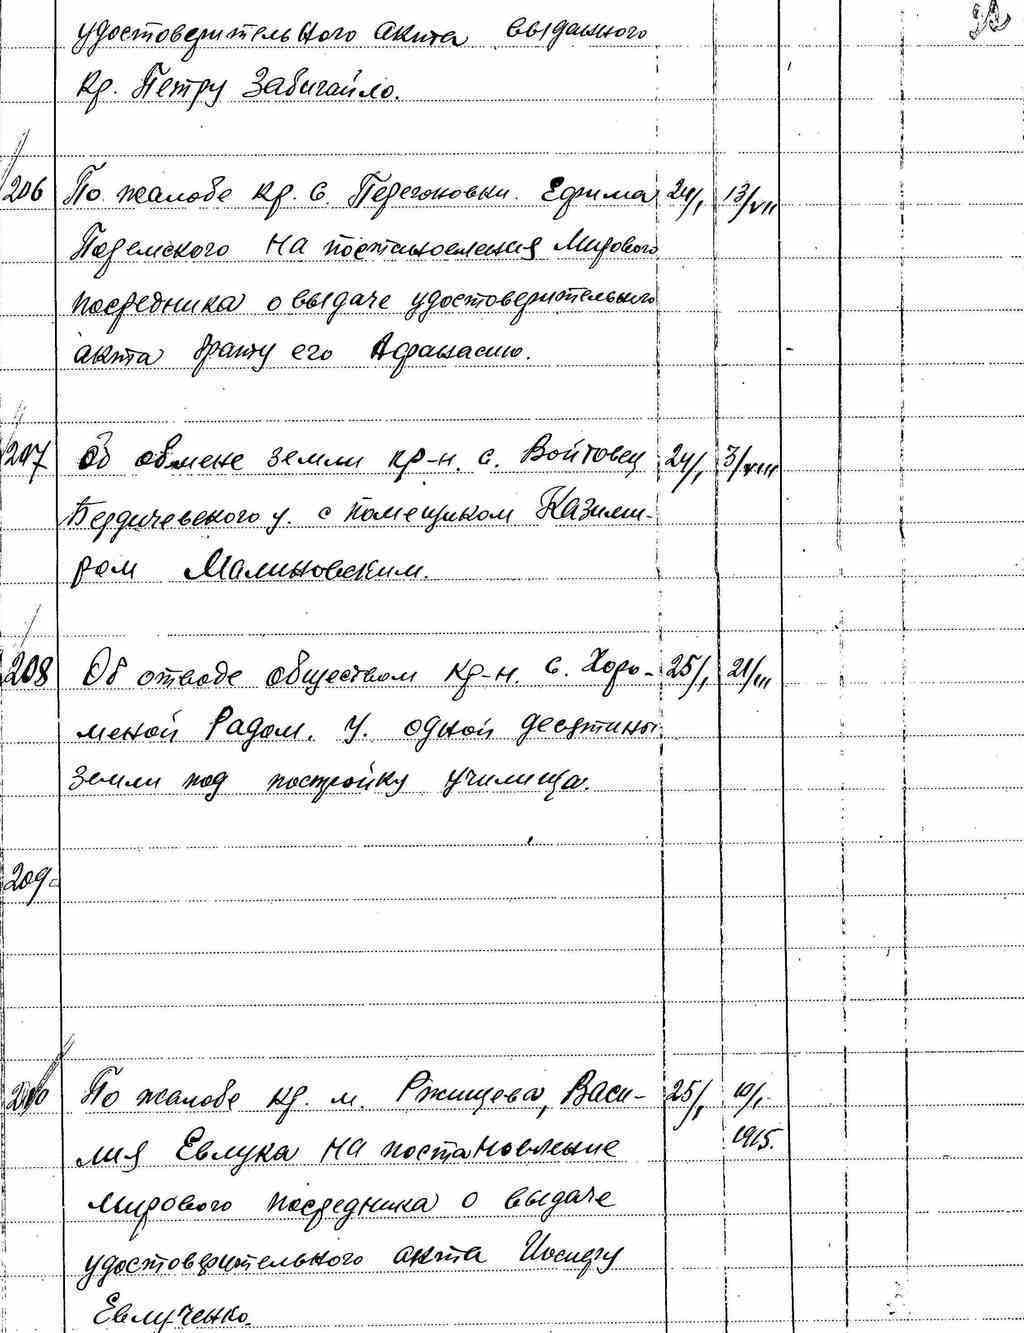 удостоверительного акта выданного
кр. Петру Забигайло.
206 По жалобе кр. с. Перегоновки. Ефима 24/I 13/VII
на постановления Мирового
посредника о выдаче удостоверительного
акта брату его Афанасию.
207 Об обмене земли кр-н. с. Войтовец 24/I 3/VIII
Бердичевского у. с помещиком Казими-
ром Малиновским.
208 Об отводе обществом кр-н. с. Хоро- 25/I 21/III
мской Радом. у. одной десятины
земли под постройку училища.
209
210 По жалобе кр. м. Ржищева, Васи- 25/I 10/I
лия Евлука на постановление 1915.
Мирового посредника о выдаче
удостоверительного акта Иосифу
Евлученко.